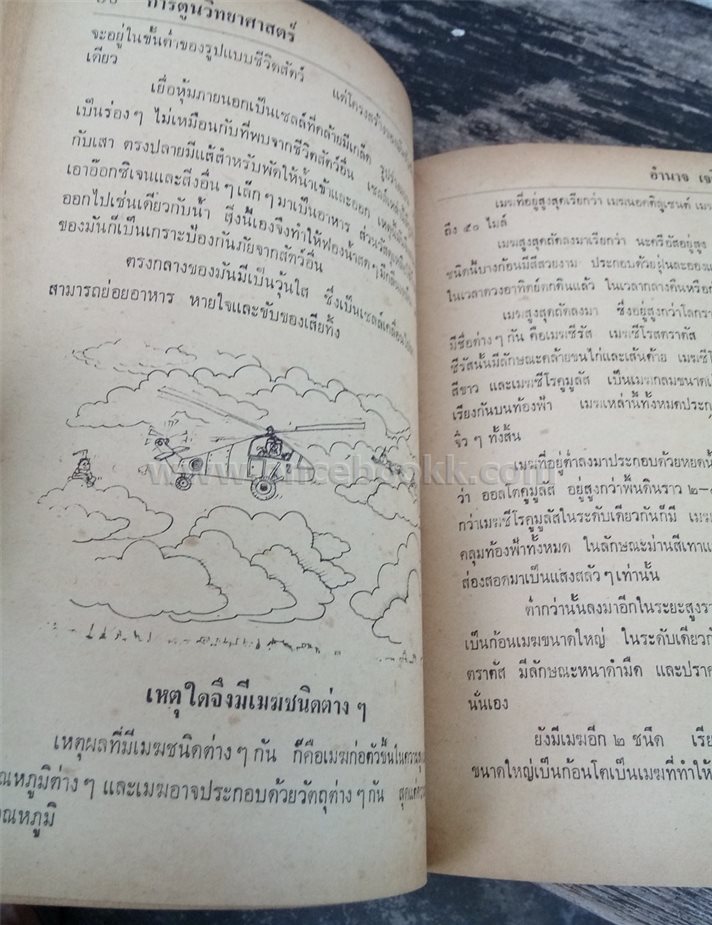 การ์ตูนวิทยาศาสตร์
จะอยู่ในขั้นต่ำของรูปแบบชีวิตสัตว์ แต่โครงสร้าง
เดียว
เยื่อหุ้มภายนอกเป็นเซลล์ที่คล้ายมีเกล็ด
เป็นร่องๆ ไม่เหมือนกับที่พบจากชีวิตสัตว์อื่น
กับเสา ตรงปลายมีแส้สำหรับพัดให้น้ำเข้าและออก
เอาอ๊อกซิเจนและสิ่งอื่นๆเล็กๆมาเป็นอาหาร
ออกไปเช่นเดียวกับน้ำ สิ่งนี้เองจึงทำให้ฟองน้ำสดๆมีกลิ่น
ของมันก็เป็นเกราะป้องกันภัยจากสัตว์อื่น
ตรงกลางของมันมีเป็นวุ้นใส ซึ่งเป็นเซลล์
สามารถย่อยอาหาร หายใจและขับของเสียทิ้ง
เหตุใดจึงมีเมฆชนิดต่างๆ
เหตุผลที่มีเมฆชนิดต่างๆกัน ก็คือเมฆก่อตัวขึ้นในความสูง
ณหภูมิต่างๆ และเมฆอาจประกอบด้วยวัตถุต่างๆกัน สุดแต่
ณหภูมิ
อำนาจ เจ
เมฆที่อยู่สูงสุดเรียกว่า เมฆนอคติลูเซนต์ เมฆ
ถึง ๕๐ ไมล์
เมฆสูงสุดถัดลงมาเรียกว่า นะครีอัสอยู่สูง
ชนิดนี้บางก้อนมีสีสวยงาม ประกอบด้วยฝุ่นละออง
ในเวลาดวงอาทิตย์ตกดินแล้ว ในเวลากลางคืนหรือก
เมฆสูงสุดถัดลงมา ซึ่งอยู่สูงกว่าโลกรา
มีชื่อต่างๆกัน คือเมฆซีรัส เมฆซีโรสตราตัส
ซีรัสนั้นมีลักษณะคล้ายขนไก่และเส้นด้าย เมฆซีโ
สีขาว และเมฆซีโรคูมูลัส เป็นเมฆกลมขนาดเ
เรียงกันบนท้องฟ้า เมฆเหล่านี้ทั้งหมดประกอ
จิ๋วๆ ทั้งสิ้น
เมฆที่อยู่ต่ำลงมาประกอบด้วยหยดน้
ว่า ออลโตคูมูลัส อยู่สูงกว่าพื้นดินราว ๒-
กว่าเมฆซีโรคูมูลัสในระดับเดียวกันก็มี เมฆ
คลุมท้องฟ้าทั้งหมด ในลักษณะม่านสีเทาแ
ส่องสอดมาเป็นแสงสลัวๆเท่านั้น
ต่ำกว่านั้นลงมาอีกในระยะสูงรา
เป็นก้อนเมฆขนาดใหญ่ ในระดับเดียวกั
ตราตัส มีลักษณะหนาดำมืด และปราด
นั่นเอง
ยังมีเมฆอีก ๒ ชนิด เรีย
ขนาดใหญ่เป็นก้อนโตเป็นเมฆที่ทำให้